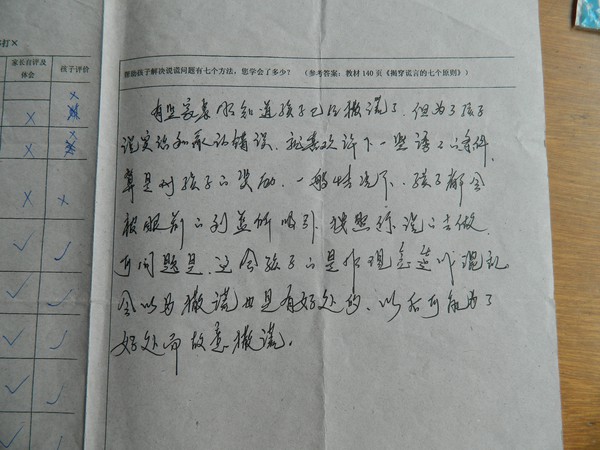 打×
家长自评及
体会
孩子评价
帮助孩子解决说谎问题有七个方法，您学会了多少？ （参考答案：教材140页《揭穿谎言的七个原则》）
有些家长明知道孩子已经撒谎了，但为了孩子
说实话和承认错误，就喜欢许下一些诱人的条件，
算是对孩子的奖励。一般情况下，孩子都会
被眼前的利益所吸引，按照你说的去做，
可问题是，这会孩子的是非观念造成混乱
会以为撒谎也是有好处的，以后可能为了
好处而故意撒谎。